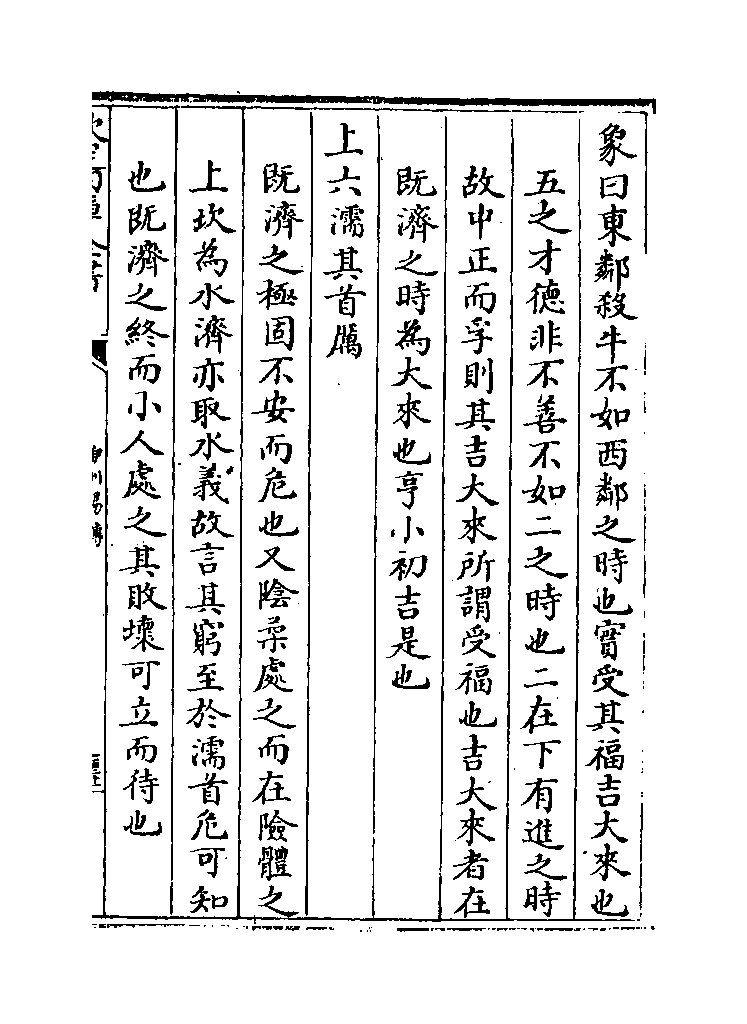 象曰東鄰殺牛不如西鄰之時也實受其福吉大來也
五之才德非不善不如二之時也二在下有進之時
故中正而孚則其吉大來所謂受福也吉大來者在
既濟之時為大來也亨小初吉是也
上六濡其首厲
既濟之極固不安而危也又陰柔處之而在險體之
上坎為水濟亦取水義故言其窮至於濡首危可知
也既濟之終而小人處之其敗壞可立而待也